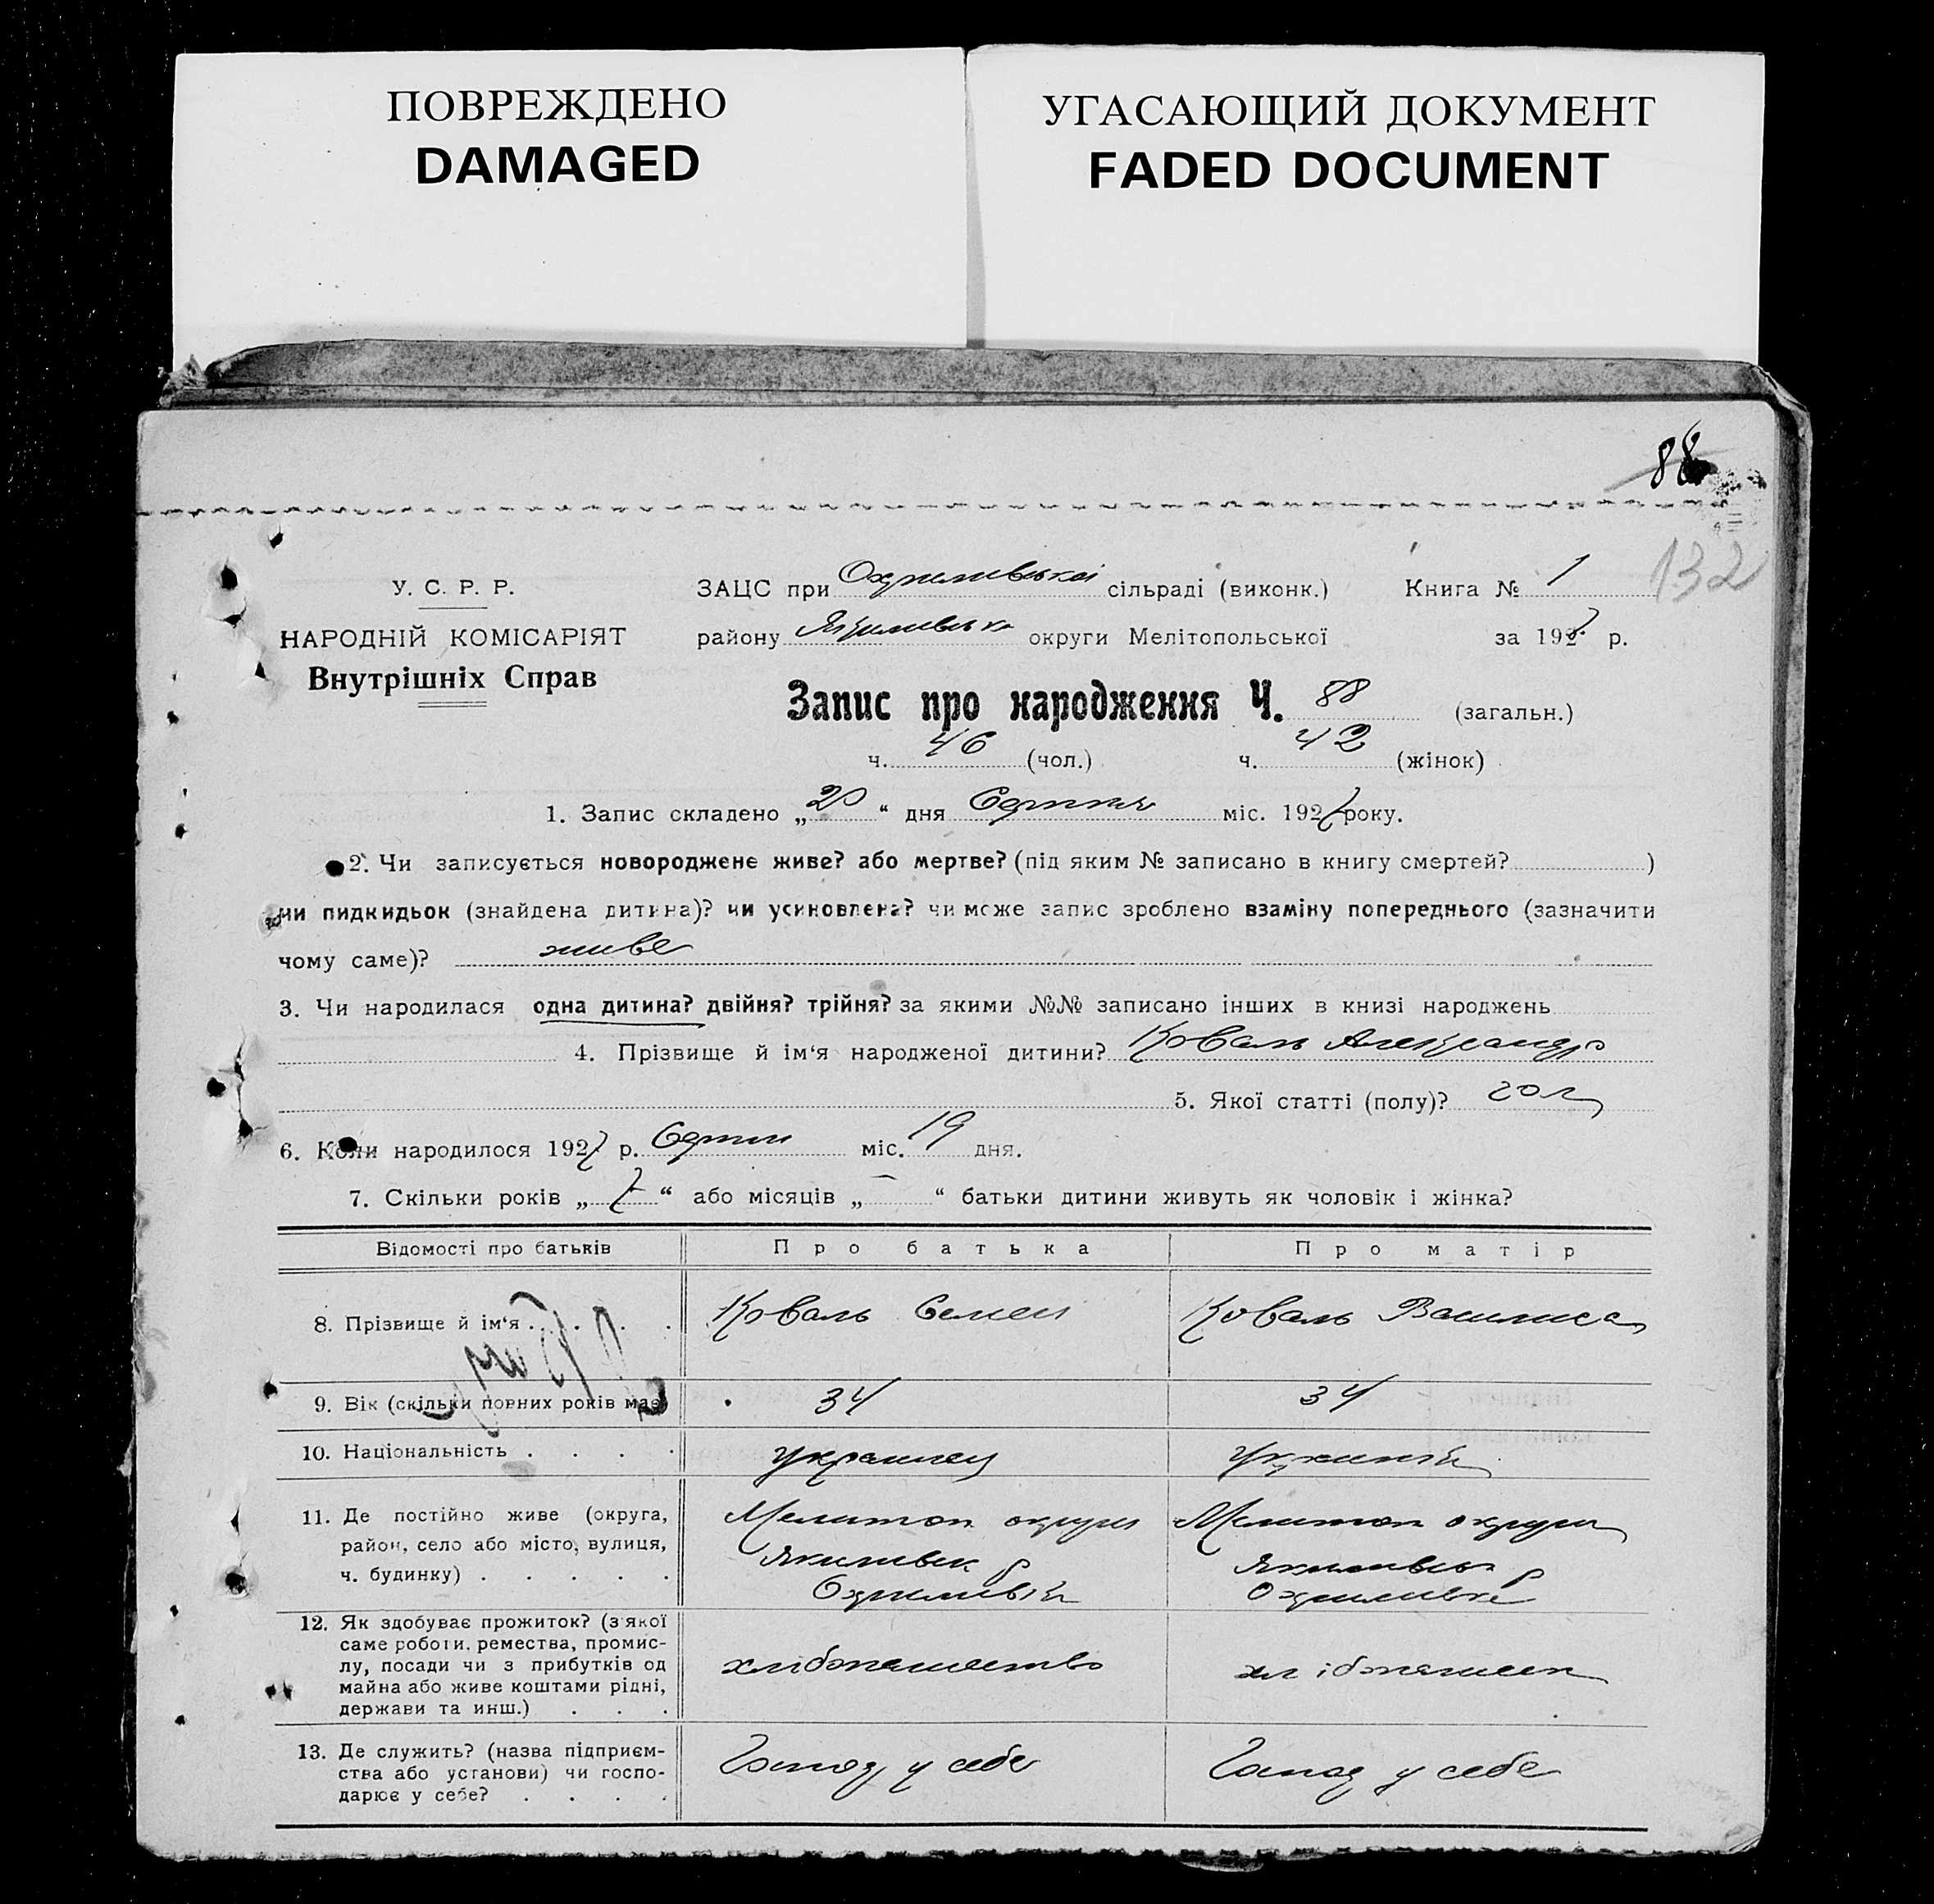 ПОВРЕЖДЕНО
DAMAGED
УГАСАЮЩИЙ ДОКУМЕНТ
FADED DOCUMENT
88
132
У. С. Р. Р.
НАРОДНІЙ КОМІСАРІЯТ
Внутрішніх Справ
ЗАЦС при Охримівській сільраді (виконк.) Книга № 1
району Якимівськ округи Мелітопольської за 1927 р.
Запис про народження Ч. 88 (загальн.)
ч. 46 (чол.) ч. 42 (жінок)
1. Запис складено „20“ дня Серпня міс. 1927 року.
2. Чи записується новороджене живе? або мертве? (під яким № записано в книгу смертей? )
чи пидкидьок (знайдена дитина)? чи усиновлена? чи може запис зроблено взаміну попереднього (зазначити
чому саме)? живе
3. Чи народилася одна дитина? двійня? трійня? за якими №№ записано інших в книзі народжень
4. Прізвище й ім‘я народженої дитини? Коваль Александр
5. Якої статті (полу)? чол
6. Коли народилося 1927 р. Серпн міс. 19 дня.
7. Скільки років „7“ або місяців „—“ батьки дитини живуть як чоловік і жінка?
Відомості про батьків Про батька Про матір
8. Прізвище й ім‘я . . . . Коваль Семен Коваль Василиса
9. Вік (скільки повних років має) 34 34
10. Національність . . . . украинец
11. Де постійно живе (округа, Мелитоп округи Мелитоп округи
район, село або місто, вулиця, Якимівськ р Якимівськ р
ч. будинку) . . . . .
12. Як здобуває прожиток? (з якої
саме роботи, ремества, промис-
лу, посади чи з прибутків од хлібопашество хлібопашеств
майна або живе коштами рідні,
держави та инш.) . . .
13. Де служить? (назва підприєм- Господ у себе Господ у себе
ства або установи) чи госпо-
дарює у себе? . . . .